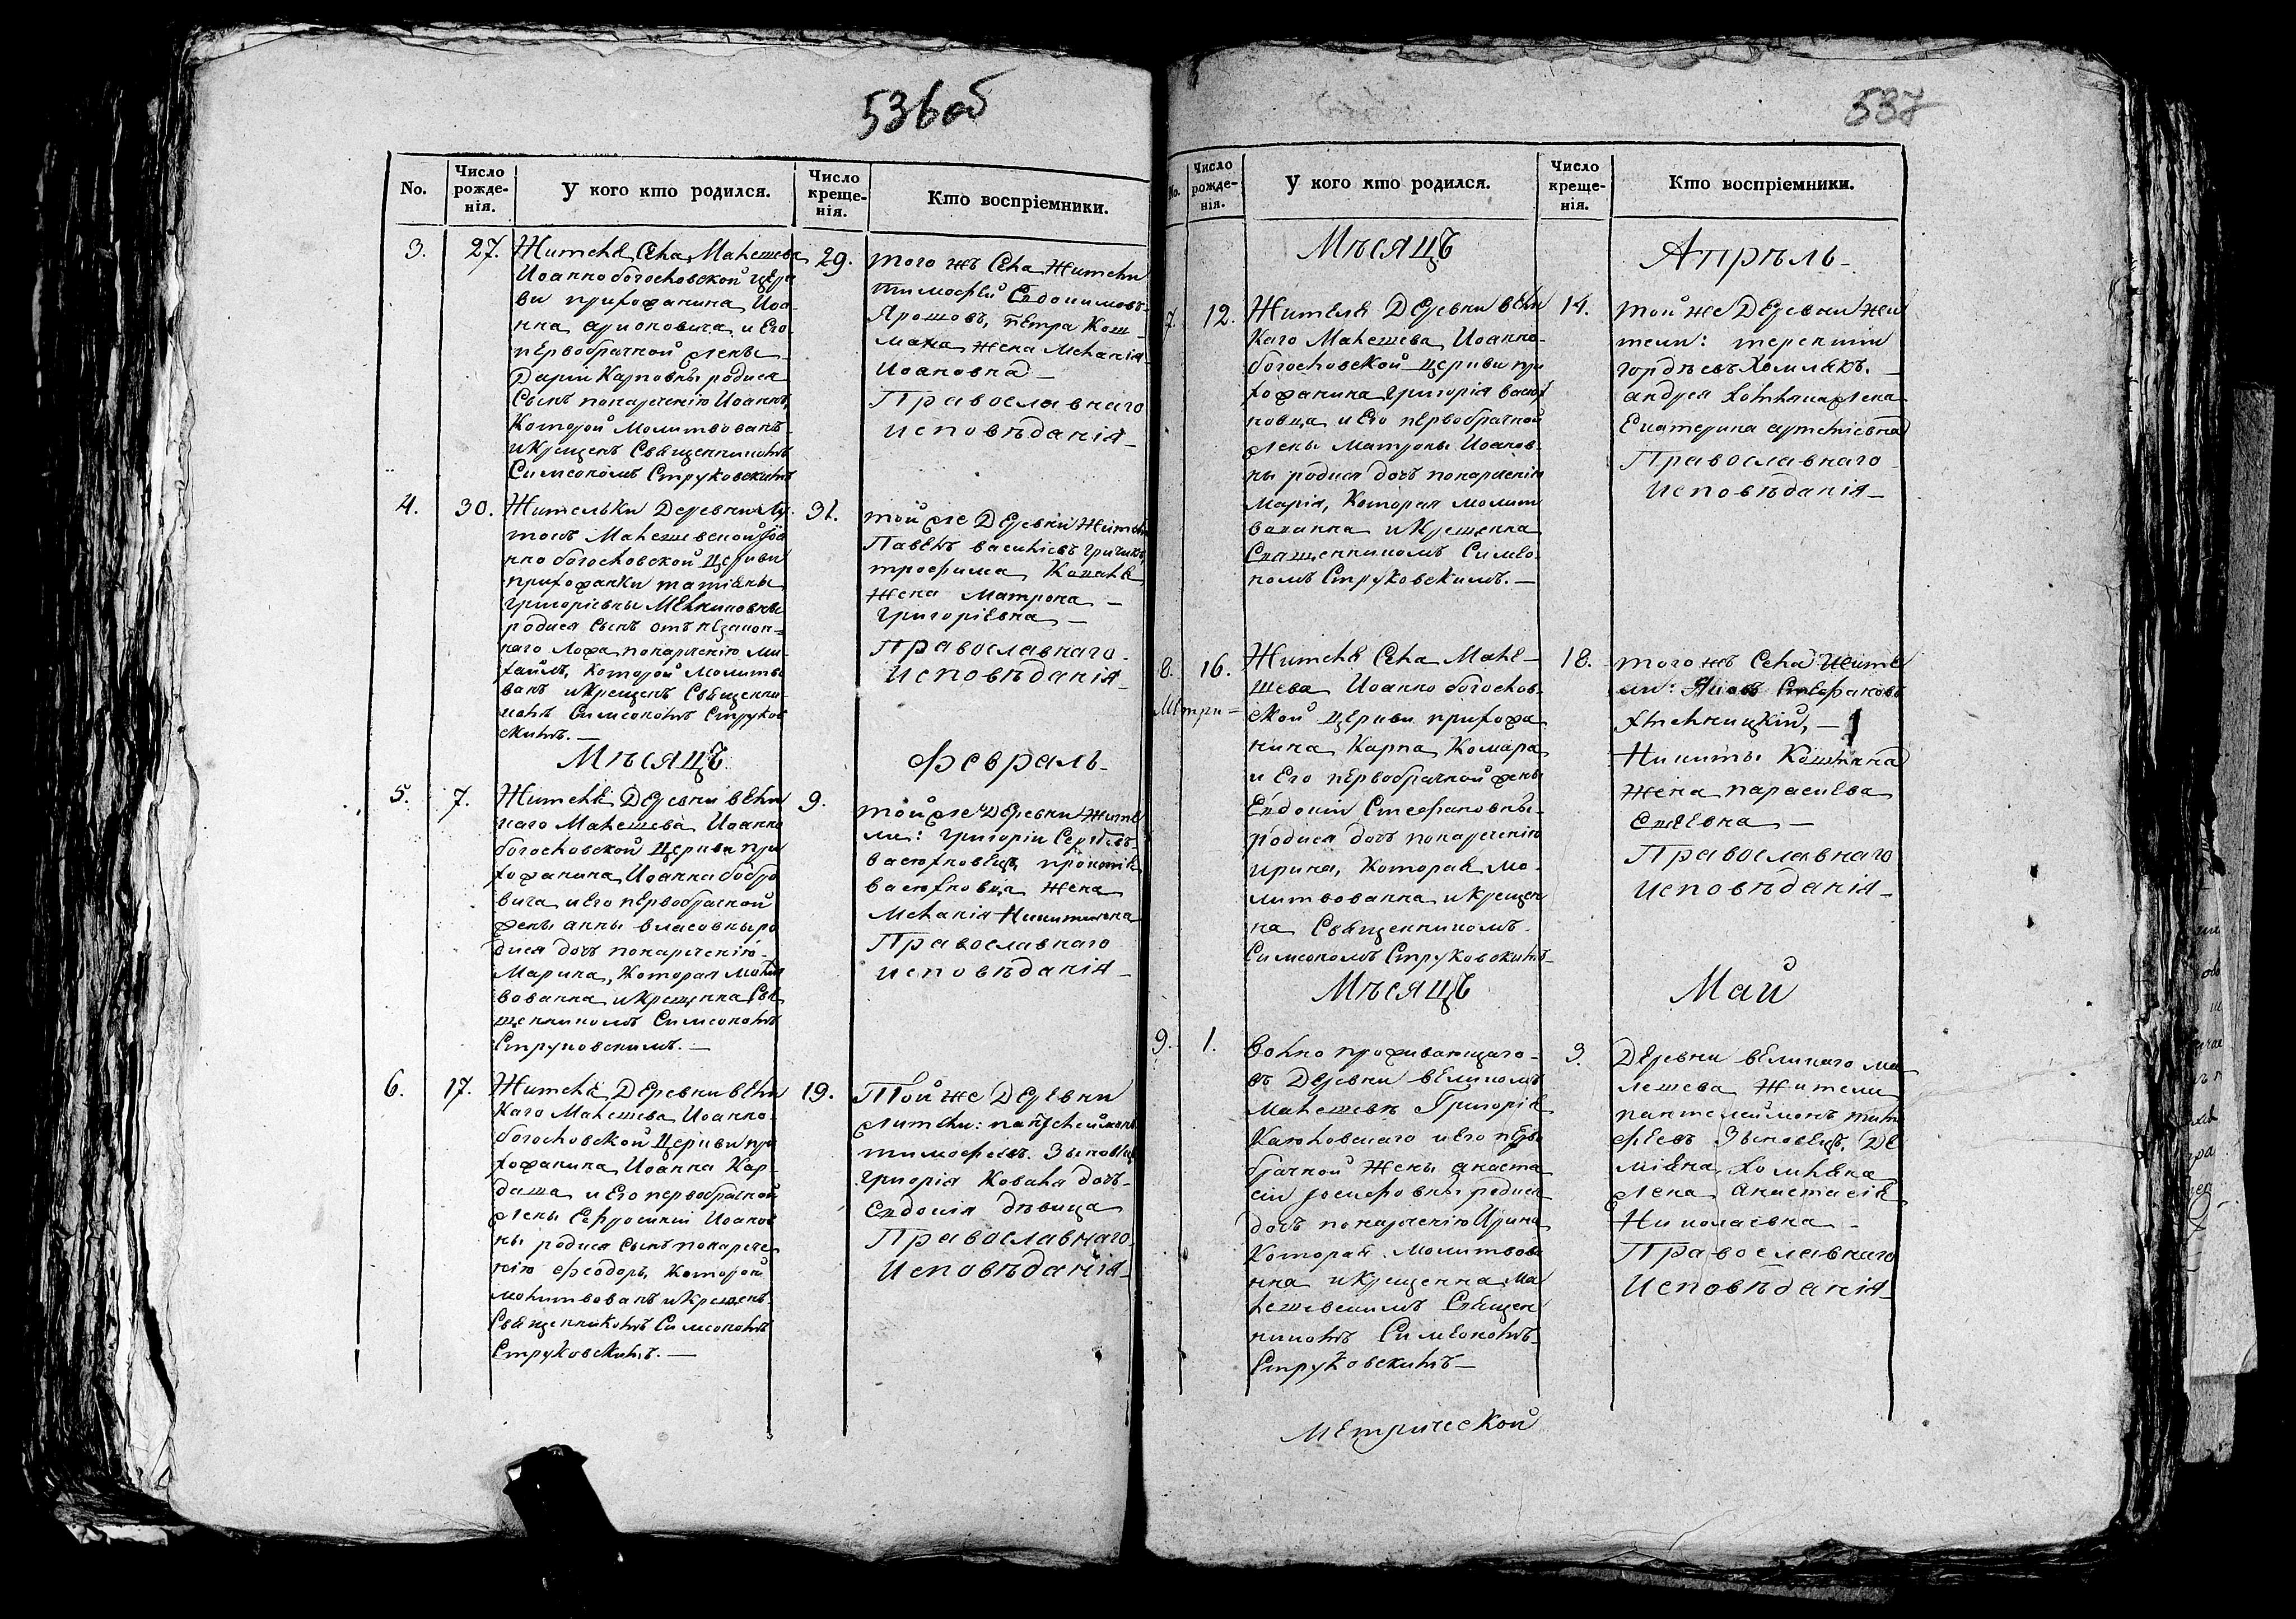 536об
No.
Число рожде-нія.
У кого кто родился.
Число креще-нія.
Кто воспріемники.
3. 27.
Жителя Села Малешева
Иоанно богословской церк
ви прихожанина Иоа
нна
и Его
первобрачной жены
Дарїи Карповны родися
Сынъ понареченію Иоаннъ,
Которой Молитвованъ
и Крещенъ Священникомъ
Симеономъ Струковскимъ
29.
того жъ Села Жители
тимофей Евдокимовъ
Ярошовъ, пЕтра Кош
мана жена Меланія
Иоановна
Православнаго
исповѣданія
4. 30.
Жительки Деревни
Малешевской Іоа
нно богословской Церкви
прихожанки татіяны
григоріевны
родися сынъ отъ незакон=
наго ложа понареченію Ми
хаилъ, Которой Молитво
ванъ и Крещенъ Священни
комъ Симеономъ Струков
скимъ.
31.
той же Деревни Жители
Павелъ васильевъ
трофима Коваля
Жена Матрона
григоріЕвна
Православнаго
исповѣданія
Мѣсяцъ
февраль
5. 7.
Жителя Деревни вели
каго Малешева Иоанно
богословской Церкви при
хожанина Иоанна бобро
вича и Его первобрачной
жены анны власовны ро
дися дочъ понареченію
Марина, Которая Молит
вованна и Крещенна Свя
щенникомъ Симеономъ
Струковскимъ.
9.
той же Деревни Жите
ли: григорій Сергѣевъ
васюхновецъ, прокопія
васюхновца Жена
Меланія Никитична
Православнаго
исповѣданія
6. 17.
Жителя Деревни вели
Каго Малешева Иоанно
богословской Церкви при
хожанина Иоанна Кар
даша и Его первобрачной
жены Ефросиніи Иоанов
ны родися сынъ понарече
нію феодоръ, Которой
молитвованъ и Крещенъ
Священникомъ Симеономъ
Струковскимъ.
19.
Той же Деревни
жители: пантелеймонъ
тимофеевъ Зыновецъ
григорія Коваля дочъ
Евдокія дѣвица
Православнаго
Исповѣданія
537
No.
Число рожде-нія.
У кого кто родился.
Число креще-нія.
Кто воспріемники.
Мѣсяцъ
Апрѣль
7. 12.
Жителя Деревни вели
Каго Малешева Иоанно
богословской церкви при
хожанина григорія васюх
новца и Его первобрачной
жены Матроны Иоанов
ны родися дочъ понареченію
Марія, Которая молит
вованна и Крещенна
Священникомъ Симео
номъ Струковскимъ.
14.
той же Деревни жи
тели: терентій
гордѣевъ Хомлякъ.
андрея жена
Екатерина
Православнаго
Исповѣданія
8. 16.
Мтри=
Жителя Села Мале
шева Иоанно богослов
ской церкви прихожа
нина Карпа Комара
и Его первобрачной жены
Евдокіи Стефановны
родися дочъ понареченію
ирина, Которая мо
литвованна и Крещен
на Священникомъ
Симеономъ Струковскимъ
18.
того жъ Села Жите
ли: Яковъ Стефановъ
Хмельницкій,
Никиты Кошмана
Жена парасиЕва
Православнаго
исповѣданія
Мѣсяцъ
Май
9. 1.
Вольно проживающаго
въ Деревни великомъ
Малешевѣ Григорія
и Его перво
брачной Жены анаста
сіи Іосифовны родися
дочъ понареченію Ирина
Которая Молитвова
нна и Крещенна Ма
лешевскимъ Священ
никомъ Симеономъ
Струковскимъ
3.
Деревни великаго Ма
лешева Жители
пантелеймонъ тимо
феевъ Зыновецъ, Де
міяна Хомляка
жена анастасія
Николаевна
Православнаго
Исповѣданія
метрической